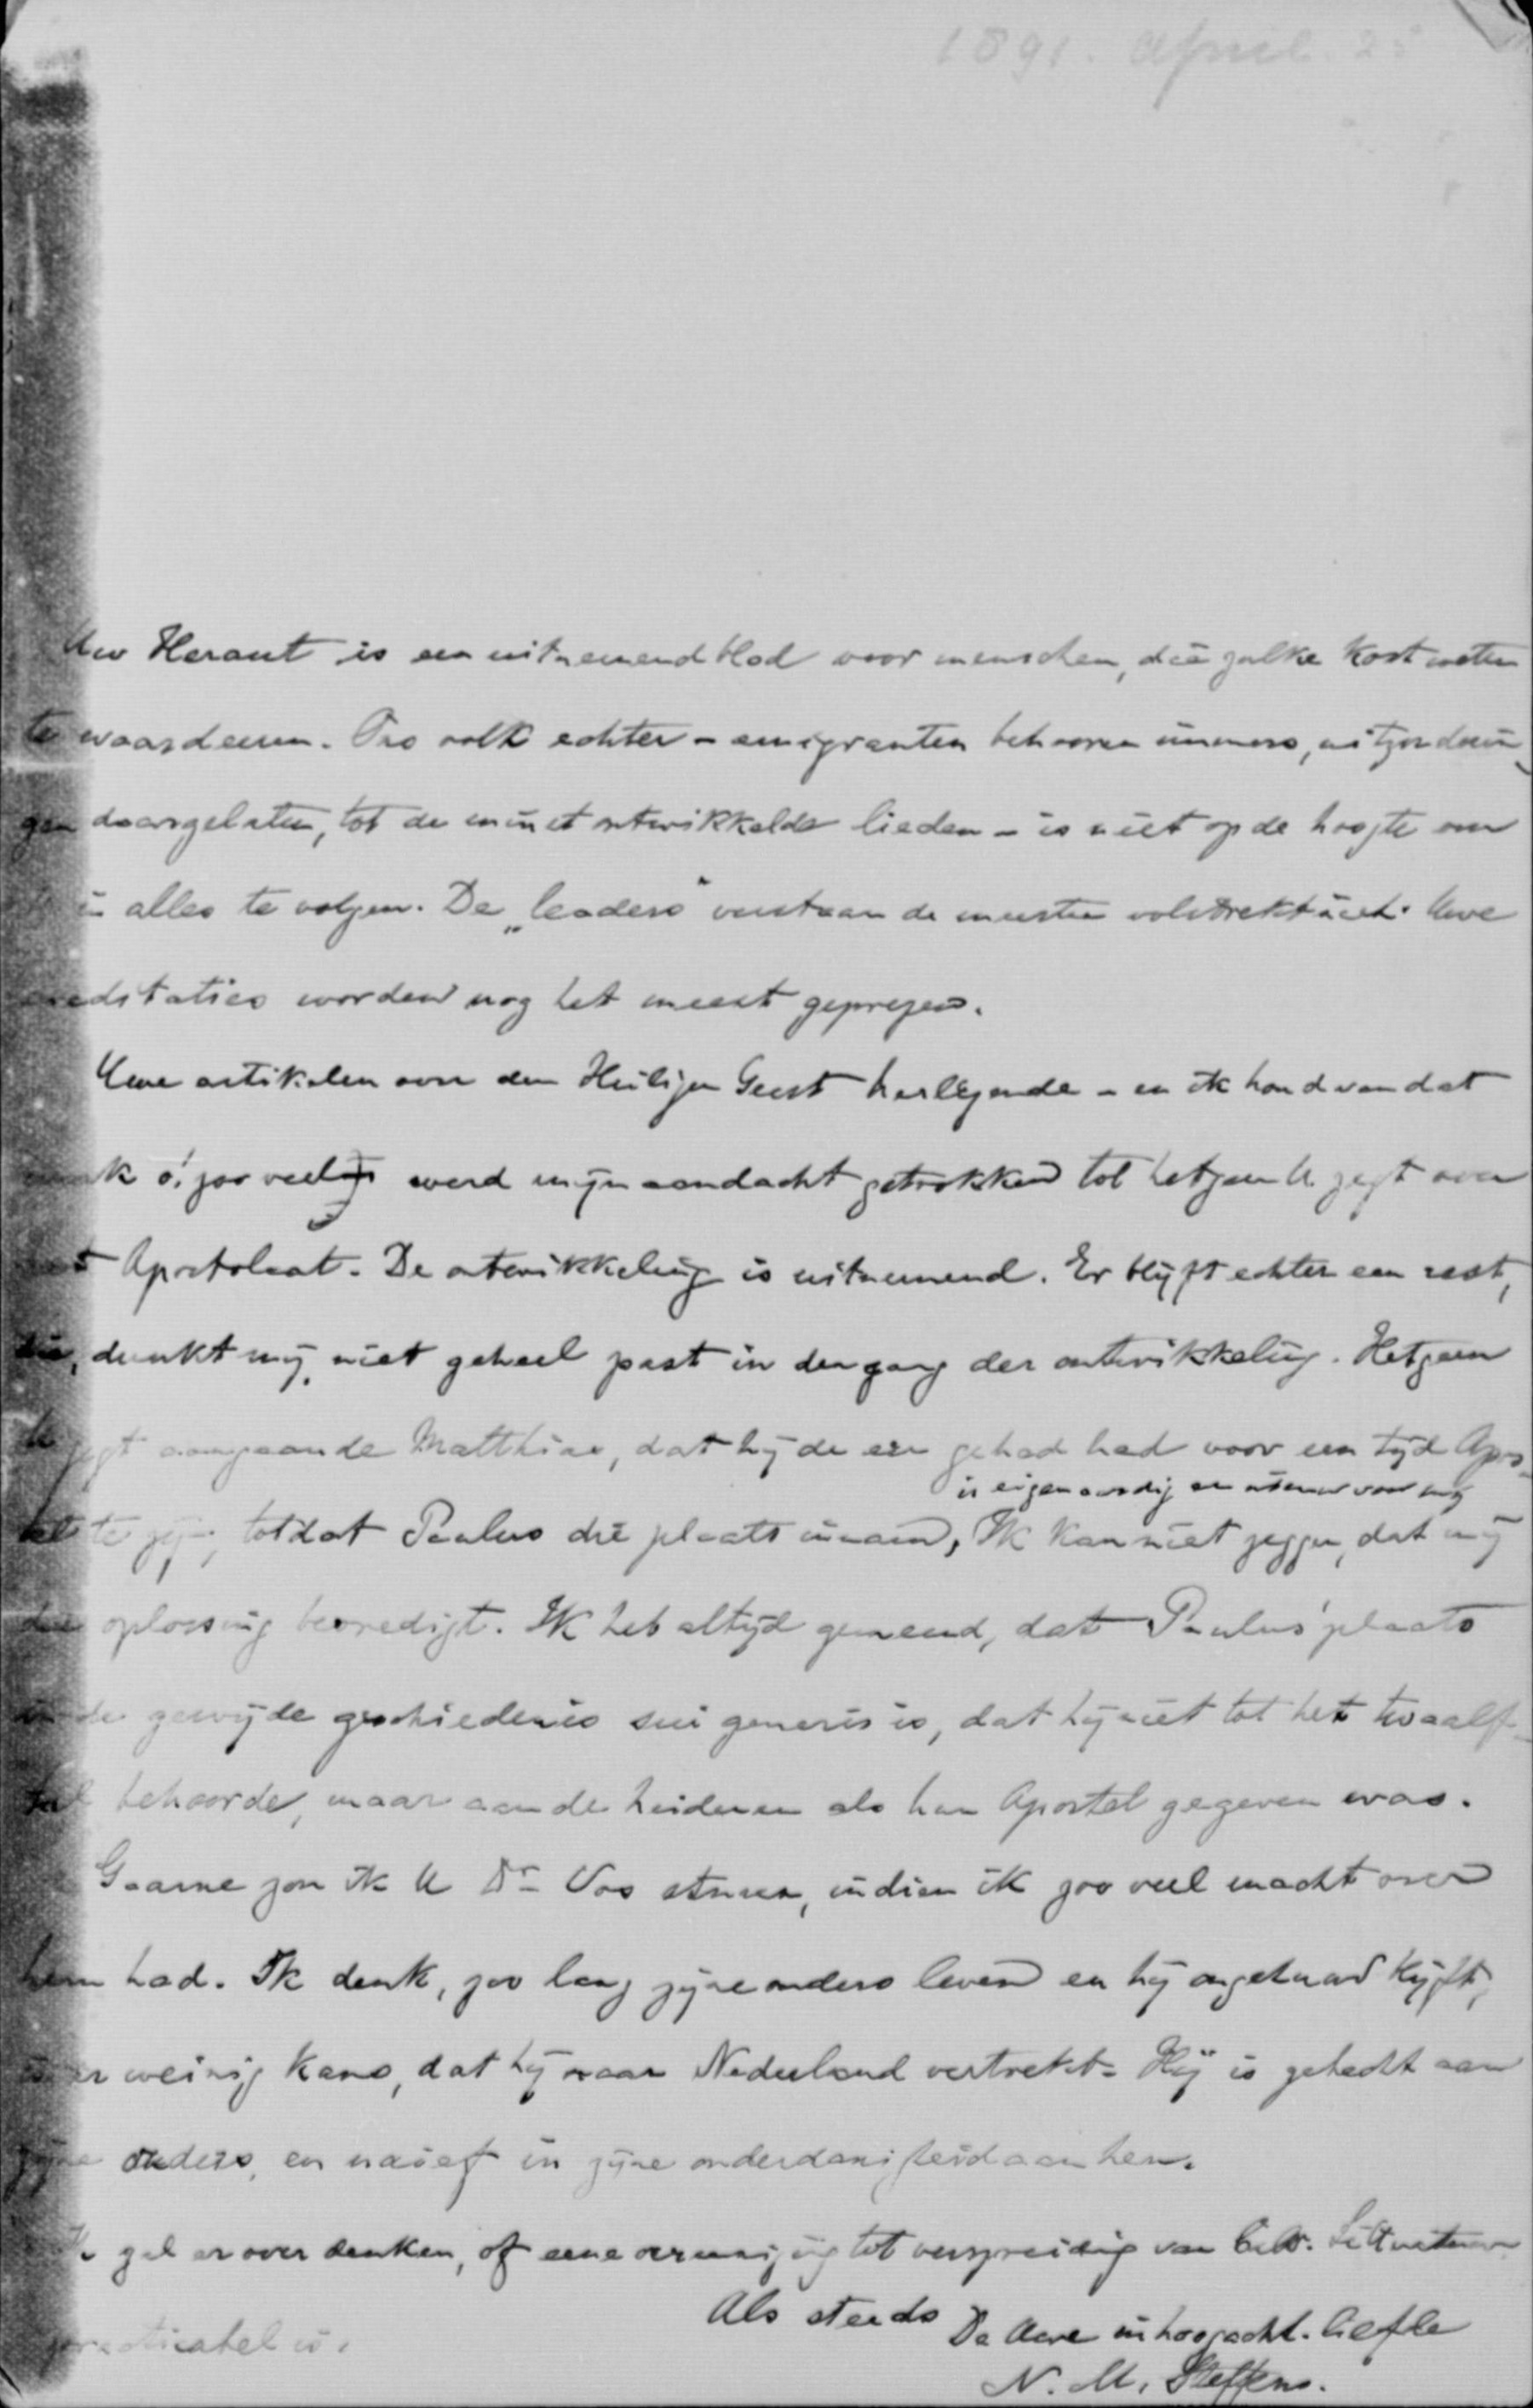 1891. April. 25
Uw Heraut is een uitnemend blad voor menschen, die zulke kost weten
te waardeeren. Ons volk echter - emigranten behooren immers, uitzonderin-
gen daargelaten, tot de minst ontwikkelde lieden - is niet op de hoogte om
in alles te volgen. De „leaders" verstaan de meesten volstrekt niet. Uwe
meditaties worden nog het meest geprezen.
Uwe artikelen over den Heiligen Geest herlezende - en ik houd van dat
werk o! zoo veel - werd mijn aandacht getrokken tot hetgeen U zegt over
het Apostolaat. De ontwikkeling is uitnemend. Er blijft echter een rest,
die, dunkt mij, niet geheel past in den gang der ontwikkeling. Hetgeen
U zegt aangaande Matthias, dat hij de eer gehad had voor een tijd Apos-
is eigenaardig en nieuw voor mij
tel te zijn, totdat Paulus die plaats innam, Ik kan niet zeggen, dat mij
die oplossing bevredigt. Ik heb altijd gemeend, dat Paulus' plaats
in de gewijde geschiedenis sui generis is, dat hij niet tot het twaalf-
tal behoorde, maar aan de heidenen als hun Apostel gegeven was.
Gaarne zou ik U Dr Vos sturen, indien ik zoo veel macht over
hem had. Ik denk, zoo lang zijne ouders leven en hij ongehuwd blijft,
is er weinig kans, dat hij naar Nederland vertrekt. Hij is gehecht aan
zijne ouders, en naief in zijne onderdanigheid aan hen.
Ik zal er over denken, of eene vereeniging tot verspreiding van Calv. Litteratuur
practicabel is.
Als steeds De Uwe in hoogacht. liefde
N. M. Steffens.